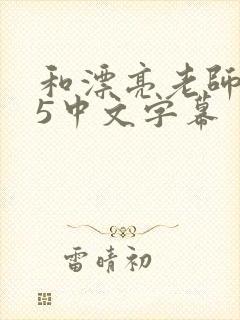 和漂亮老師
5中文字幕
雷晴初